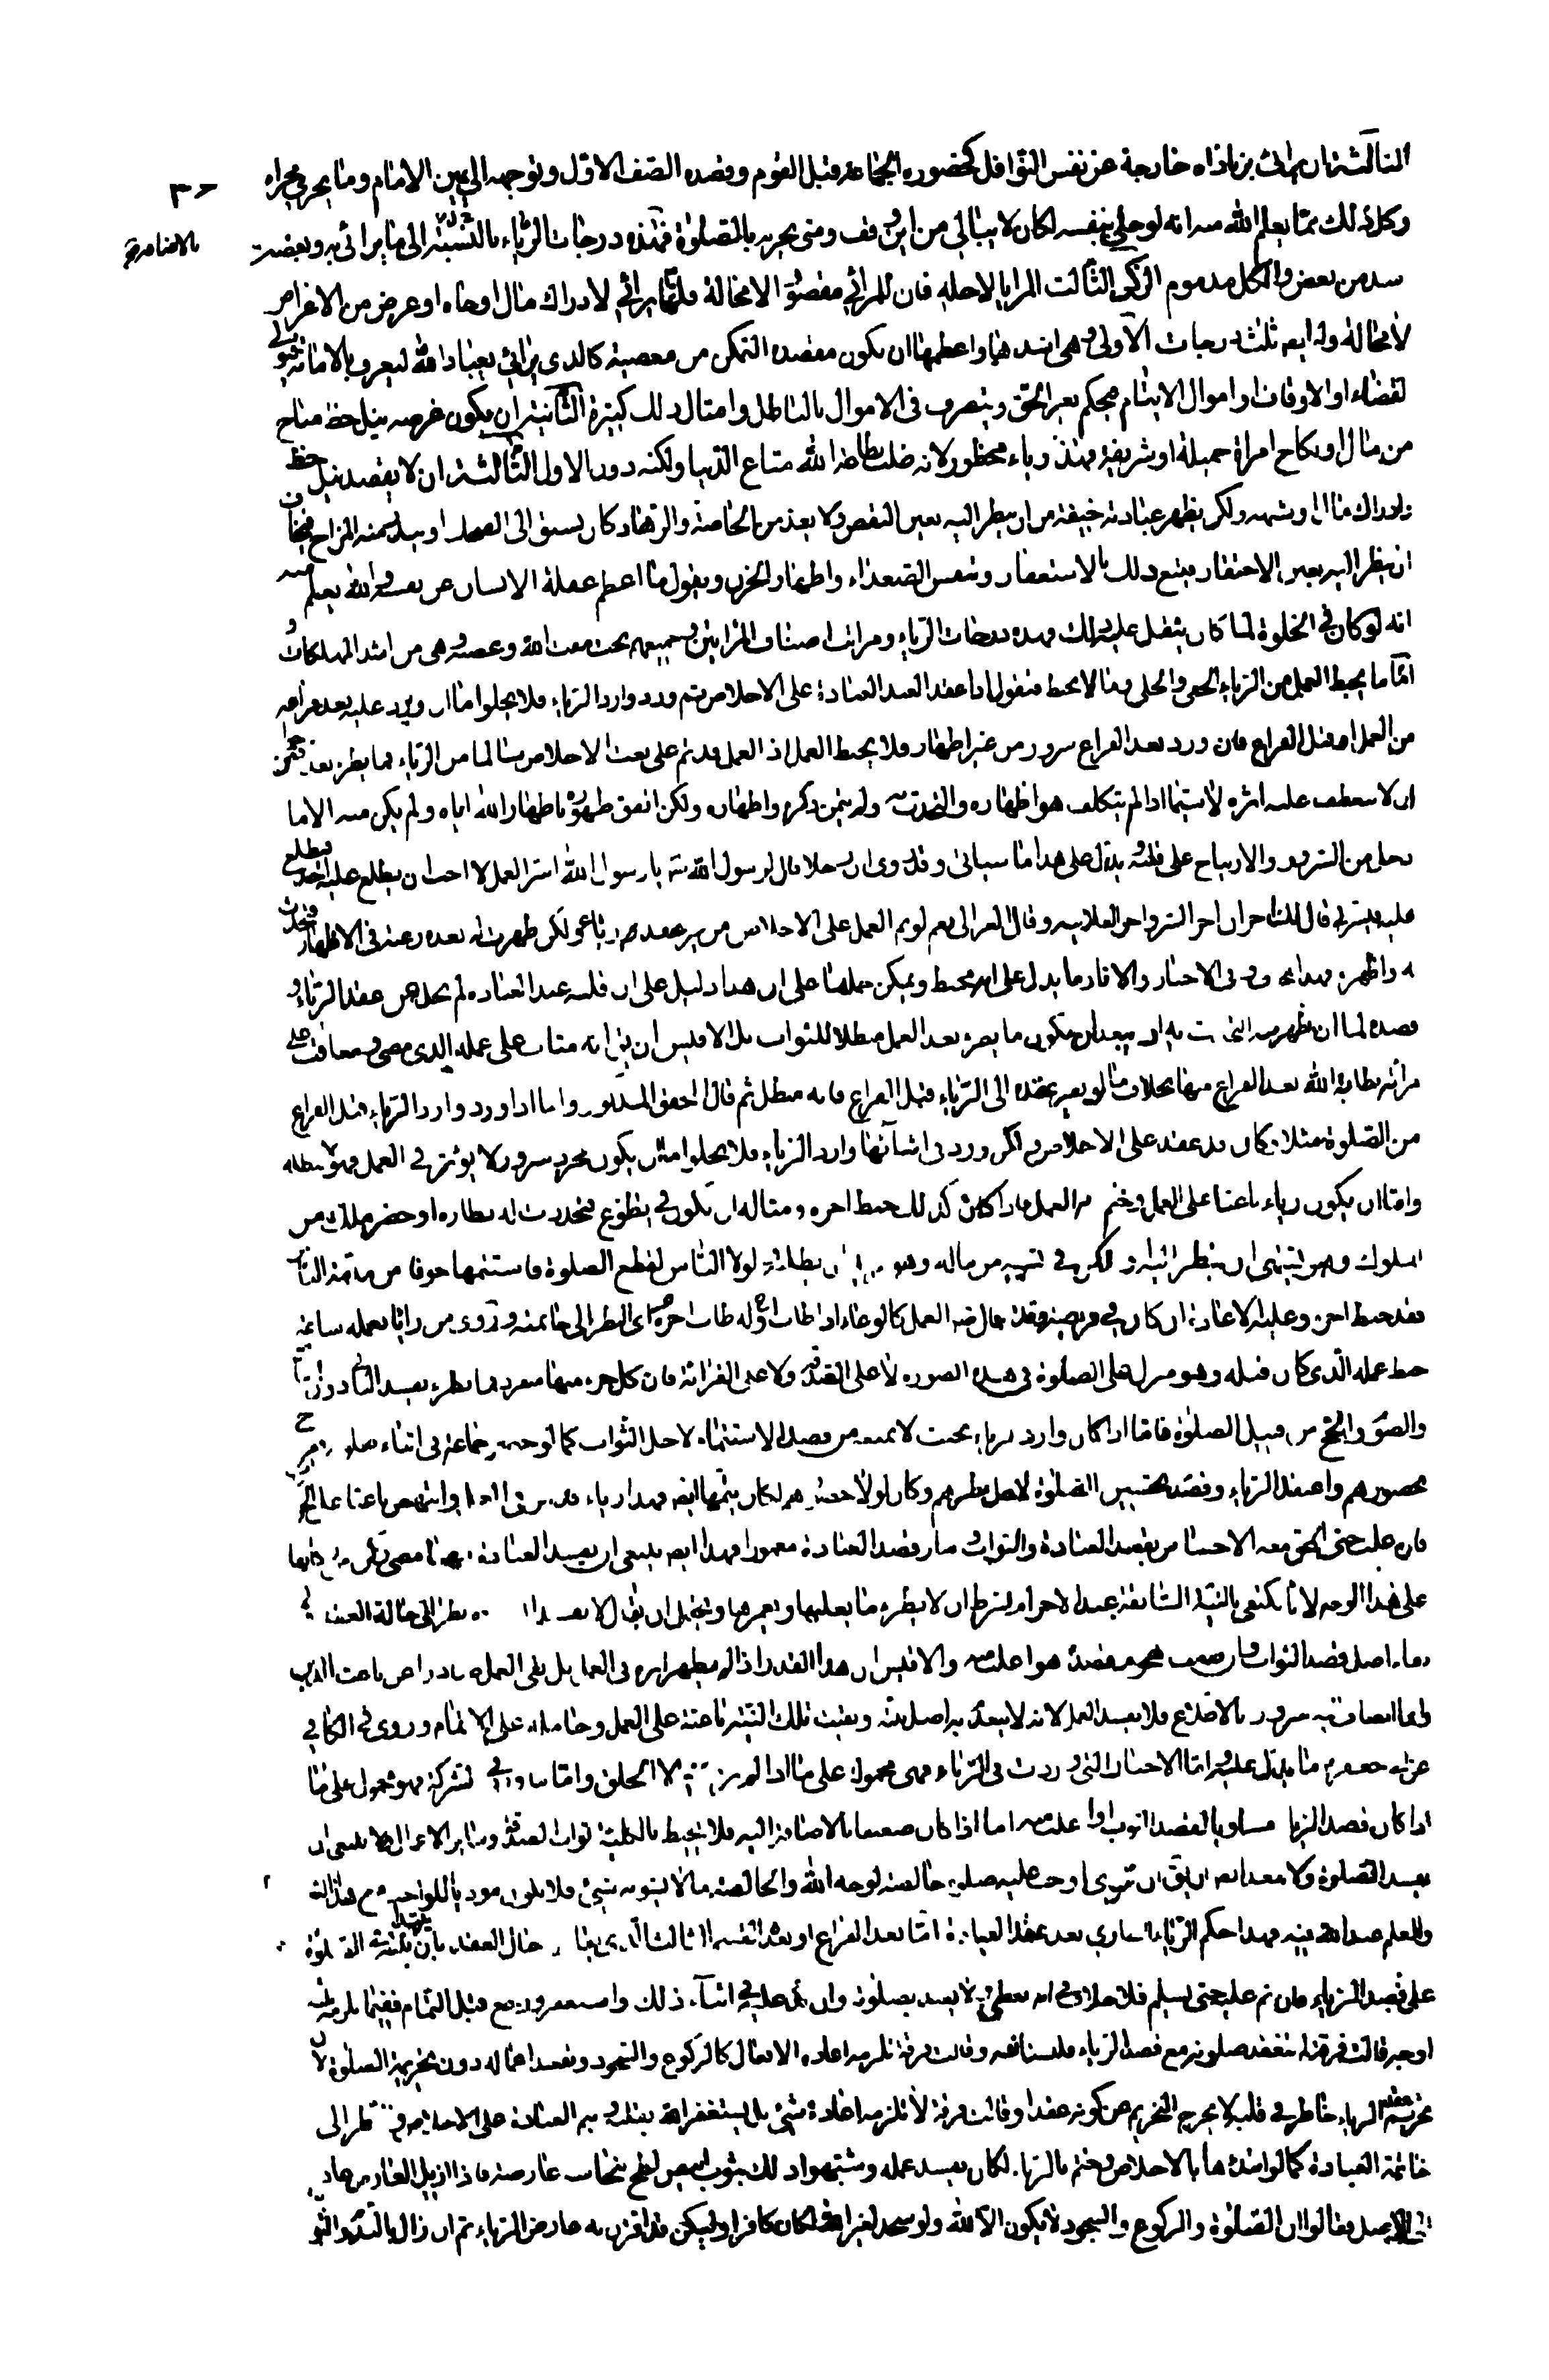 الثالثة ان يرائى بزيادات خارجة عن نفس النوافل كحضوره الجماعة قبل القوم وقصده الصف الاول وتوجهه الى يمين الامام وما يجرى مجراه
وكل ذلك مما يعلم الله منه انه لو خلى بنفسه لكان لا يبالى من اين وقف ومتى يحرم بالصلوة فهذه درجات الرياء بالنسبة الى ما يرائى به وبعضه
بالاضافة
اشد من بعض والكل مذموم الركن الثالث المرايا لاجله فان للمرائى مقصودا لا محالة فانما يرائى لادراك مال او جاه او غرض من الاغراض
لا محالة وله ايضه ثلث درجات الاولى وهى اشدها واعظمها ان يكون مقصده التمكن من معصية كالذى يرائى بعبادة الله ليعرف بالامانة فيولى
القضاء او الاوقاف او اموال الايتام فيحكم بغير الحق ويتصرف فى الاموال بالباطل وامثال ذلك كثيرة الثانية ان يكون غرضه نيل حظ مباح
من مال او نكاح امراة جميلة او شريفة فهذا رياء محظور لانه طلب بطاعة الله متاع الدنيا ولكنه دون الاول الثالثة ان لا يقصد نيل حظ
وادراك مال او شبهه ولكن يظهر عبادته خيفة من ان ينظر اليه بعين النقص ولا يعد من الخاصة والزهاد كان يسبق الى الضحك او يبدر منه المزاح فيخاف
ان ينظر اليه بعين الاحتقار فيتبع ذلك بالاستغفار وتنفس الصعداء واظهار الحزن ويقول ما اعظم غفلة الانسان عن نفسه والله يعلم منه
انه لو كان فى الخلوة لما كان يثقل عليه ذلك فهذه درجات الرياء ومراتب اصناف المرايين وجميعهم تحت مقت الله وغضبه وهى من اشد المهلكات و
اما ما يحبط العمل من الرياء الخفى والجلى وما لا يحبط فنقول اذا عقد العبد العبادة على الاخلاص ثم ورد وارد الرياء فلا يخلوا اما ان ورد عليه بعد فراغه
من العمل او قبل الفراغ فان ورد بعد الفراغ سرور من غير اظهار فلا يحبط العمل اذ العمل قد تم على نعت الاخلاص سالما من الرياء فما يطرء بعد
ان لا ينعطف عليه اثره لا سيما اذا لم يتكلف هو اظهاره والتحدث به ولم يتمن ذكره واظهاره ولكن اتفق ظهوره باظهار الله اياه ولم يكن منه الا ما
دخل من السرور والارتياح على قلبه يدل على هذا ما سياتى وقد روى ان رجلا قال لرسول الله ص يا رسول الله اسر العمل لا احب ان يطلع عليه احد فيطلع
عليه فيسرنى قال لك اجران اجر السر واجر العلانية وقال الغزالى نعم لو تم العمل على الاخلاص من غير عقد رياء ولكن ظهرت له بعده رغبة فى الاظهار فتحدث
به واظهره فهذا وفى الاخبار والاثار ما يدل على انه محبط ويمكن حملها على ان هذا دليل على ان قلبه عند العبادة لم يخل عن عقد الرياء و
قصده لما ان ظهر منه التحدث به اذ يبعد ان يكون ما يطرء بعد العمل مبطلا للثواب بل الاقيس ان يق انه مثاب على عمله الذى مضى ومعاقب على
مرائاته بطاعة الله بعد الفراغ منها بخلاف ما لو تغير عقده الى الرياء قبل الفراغ فانه مبطل ثم قال المذكور واما اذا ورد وارد الرياء قبل الفراغ
من الصلوة مثلا وكان قد عقد على الاخلاص ولكن ورد فى اثنائها وارد الرياء فلا يخلوا اما ان يكون مجرد سرور لا يؤثر فى العمل فهو لا يبطله
واما ان يكون رياء باعثا على العمل وختم به العمل فاذا كان كذلك حبط اجره ومثاله ان يكون فى تطوع فتجددت له نظارة او حضر ملك من
الملوك وهو يشتهى ان ينظر اليه او يذكر شيئا نسيه من ماله وهو يريد ان يطلبه لولا الناس لقطع الصلوة فاستتمها خوفا من مذمة الناس
فقد حبط اجره وعليه الاعادة ان كان فى فريضة وقد قال ص العمل كالوعاء اذا طاب اخره طاب اوله اى النظر الى خاتمته وروى من رايا بعمله ساعة
حبط عمله الذى كان قبله وهو منزل على الصلوة فى هذه الصورة لا على الصدقة ولا على القراءة فان كل جزء منها منفرد فما يطرء يفسد الباقى دون الماضى
والصوم والحج من قبيل الصلوة فاما اذا كان وارد الرياء بحيث لا يمنعه من قصد الاستتمام لاجل الثواب كما لو حضر جماعة فى اثناء صلوته ففرح
بحضورهم واعتقد الرياء وقصد تحسين الصلوة لاجل نظرهم وكان لولا حضورهم لكان يتمها ايضه فهذا رياء قد اثر فى العمل وانتهض باعثا على الحركات
فان غلب حتى انمحق معه الاحساس بقصد العبادة والثواب وصار قصد العبادة مغمورا فهذا ايضه ينبغى ان يفسد العبادة مهما مضى ركن من اركانها
على هذا الوجه لانا نكتفى بالنية السابقة عند الاحرام بشرط ان لا يطرء ما يغلبها ويغمرها ويحتمل ان يقال لا يفسد نظرا الى حالة العقد و
بقاء اصل قصد الثواب وان ضعف بهجوم قصد هو اغلب منه والاقيس ان هذا القدر اذا لم يظهر اثره فى العمل بل بقى العمل صادرا عن باعث الدين
وانما انضاف اليه سرور بالاطلاع فلا يفسد العمل لانه لا ينعدم به اصل نيته وبقيت تلك النية باعثة على العمل وحاملة على الاتمام وروى فى الكافى
عن ابى جعفر ع ما يدل عليه واما الاخبار التى وردت فى الرياء فهى محمولة على ما اذا لم يرد به الا الخلق واما ما ورد فى الشركة فهو محمول على ما
اذا كان قصد الرياء مساويا لقصد الثواب او اغلب منه اما اذا كان ضعيفا بالاضافة اليه فلا يحبط بالكلية ثواب الصدقة وسائر الاعمال ولا ينبغى ان
يفسد الصلوة ولا يبعد ايضه ان يق ان الذى اوجب عليه صلوة خالصة لوجه الله والخالصة ما لا يشوبه شئ فلا يكون مؤديا للواجب مع هذا الشوب
والعلم عند الله فيه فهذا حكم الرياء الطارى بعد عقد العبادة اما بعد الفراغ او قبله القسم الثالث الذى يقارن حال العقد بان يبتدى الصلوة
على قصد الرياء فان تم عليه حتى يسلم فلا خلاف فى انه يعصى ولا يعتد بصلوته وان ندم عليه فى اثناء ذلك واستغفر ورجع قبل التمام ففيما يلزمه ثلثة
اوجه قالت فرقة لم تنعقد صلوته مع قصد الرياء فليستانف وقالت فرقة تلزمه اعادة الافعال كالركوع والسجود وتفسد افعاله دون تحريمة الصلوة لان
التحريم عقد والرياء خاطر فى قلبه لا يخرج التحريم عن كونه عقدا وقالت فرقة لا تلزمه اعادة شئ بل يستغفر الله بقلبه ويتم العبادة على الاخلاص والنظر الى
خاتمة العبادة كما لو ابتدأها بالاخلاص وختم بالرياء لكان يفسد عمله وشبهوا ذلك بثوب ابيض لطخ بنجاسة عارضة فاذا ازيل العارض عاد
الى الاصل فقالوا ان الصلوة والركوع والسجود لا يكون الا لله ولو سجد لغير الله لكان كافرا ولكن قد اقترن به عارض الرياء ثم ان زال بالندم والتوبة